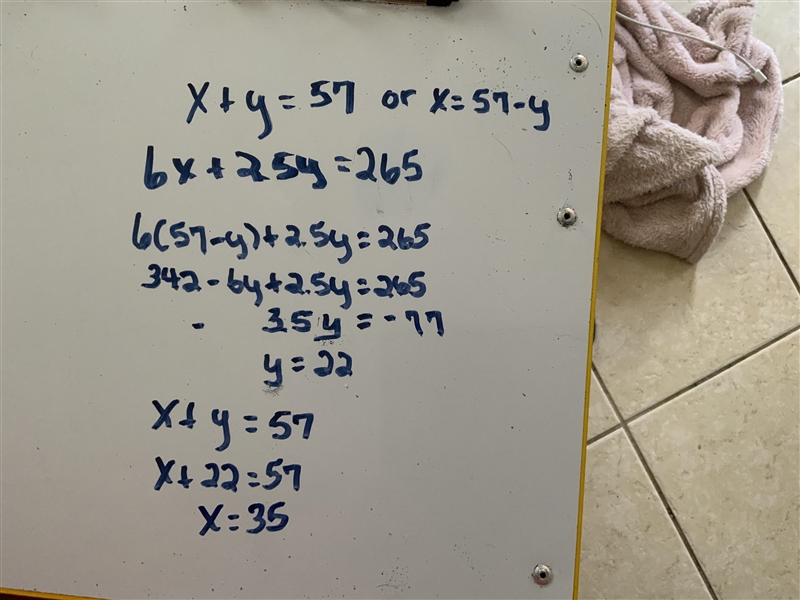 x+y=57 or x=57-y
6x+2.5y=265
6(57-y)+2.5y=265
342-6y+2.5y=265
- 3.5y=-77
y=22
x+y=57
x+22=57
x=35